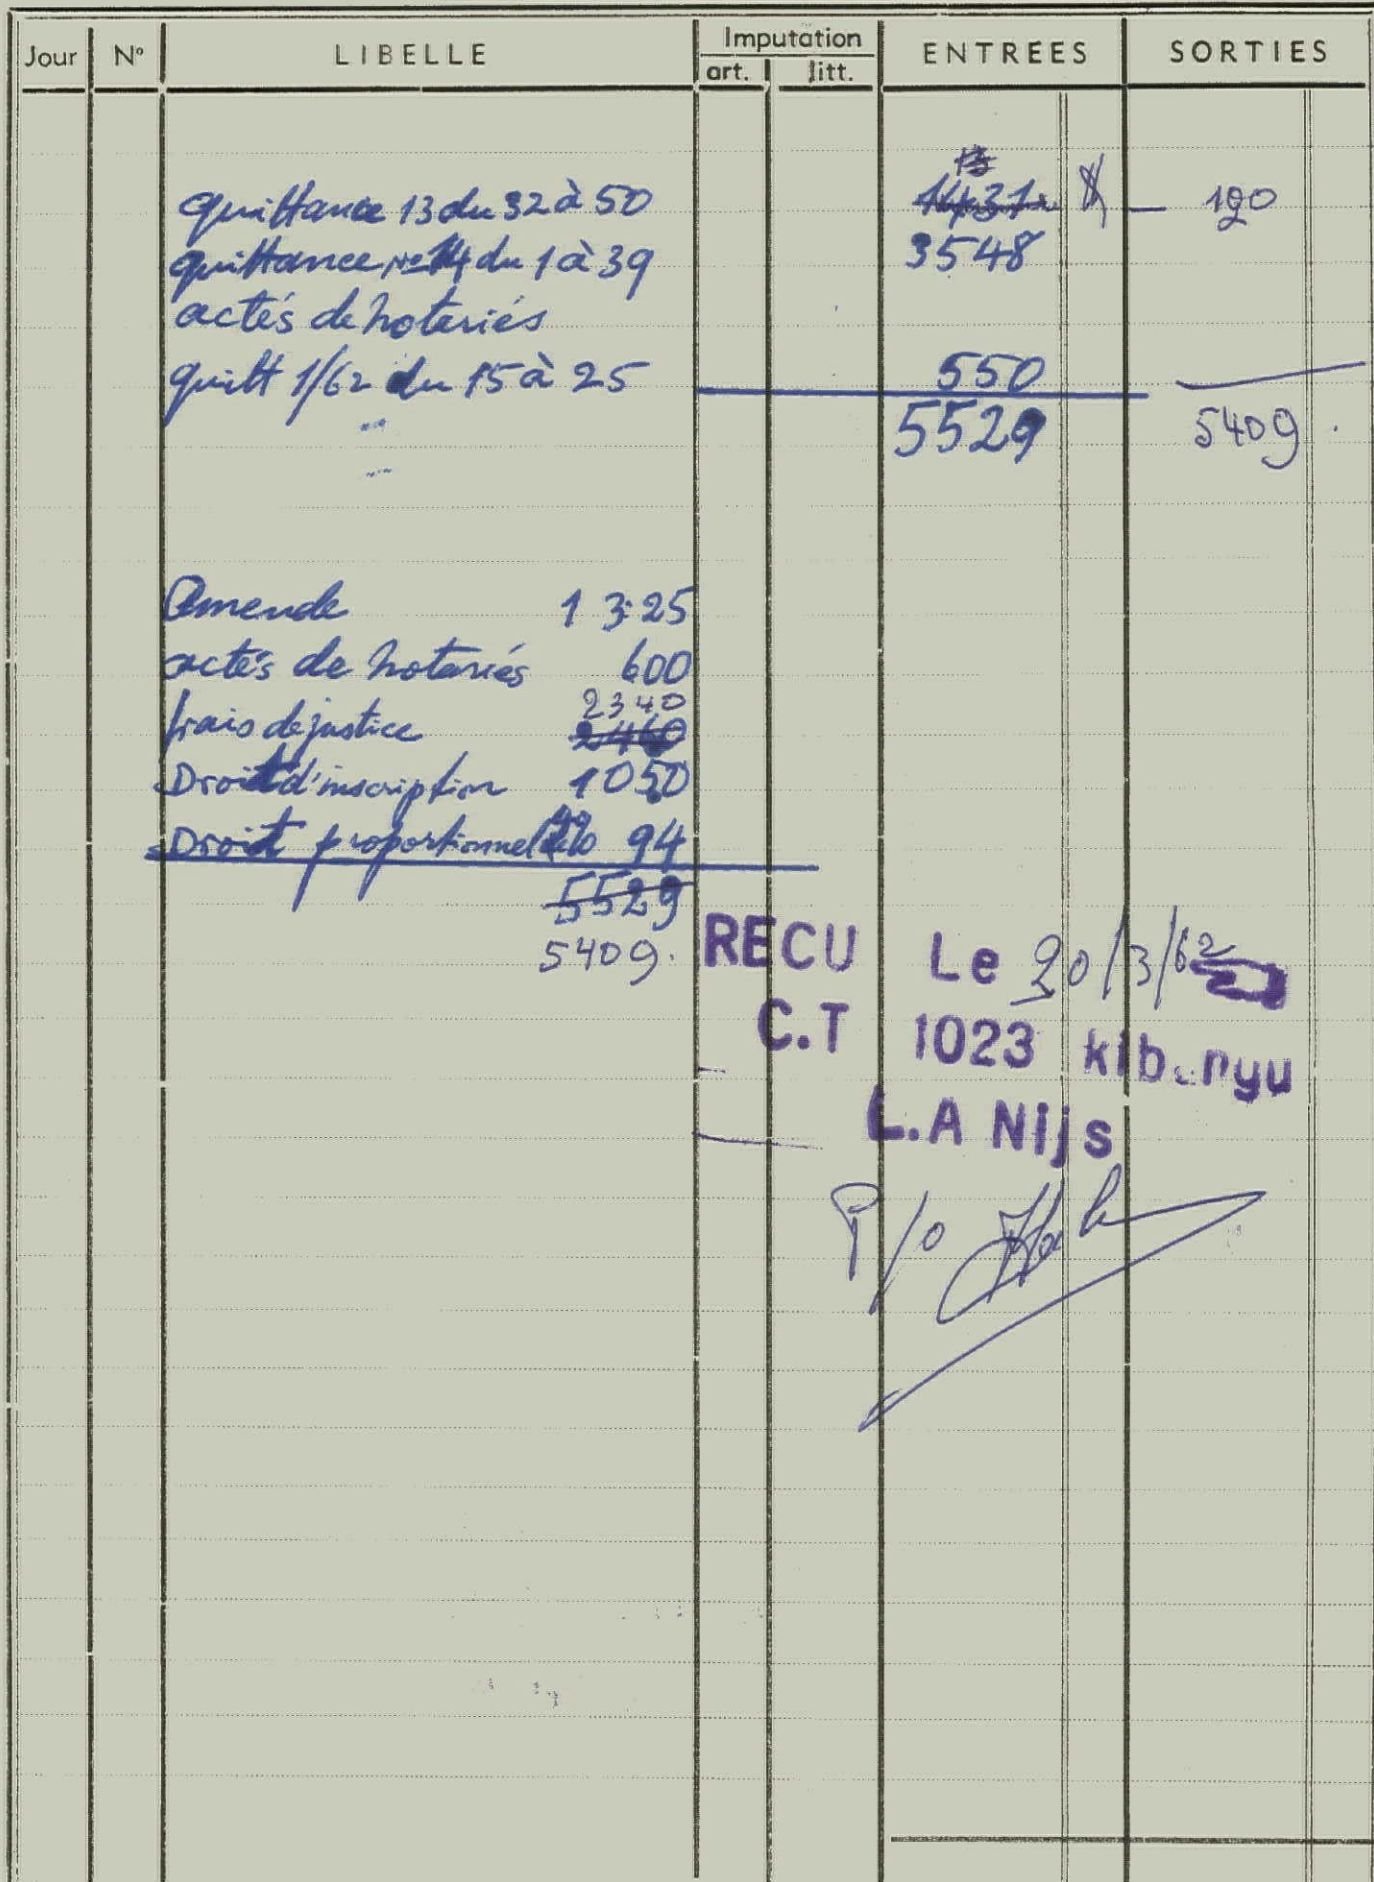 Jour N° LIBELLE Imputation ENTREES SORTIES
art. litt.
quittance 13 du 32 à 50 1431 — 120
quittance n° 14 du 1 à 39 3548
actés de notariés
quitt 1/62 du 15 à 25 550
" 5529 5409.
"
Amende 1325
actés de notariés 600
2340
frais de justice 2460
Droit d'inscription 1050
Droit proportionnel 4% 94
5529
5409.
RECU Le 20/3/62
C.T 1023 kib.nyu
L.A Nijs
P/o